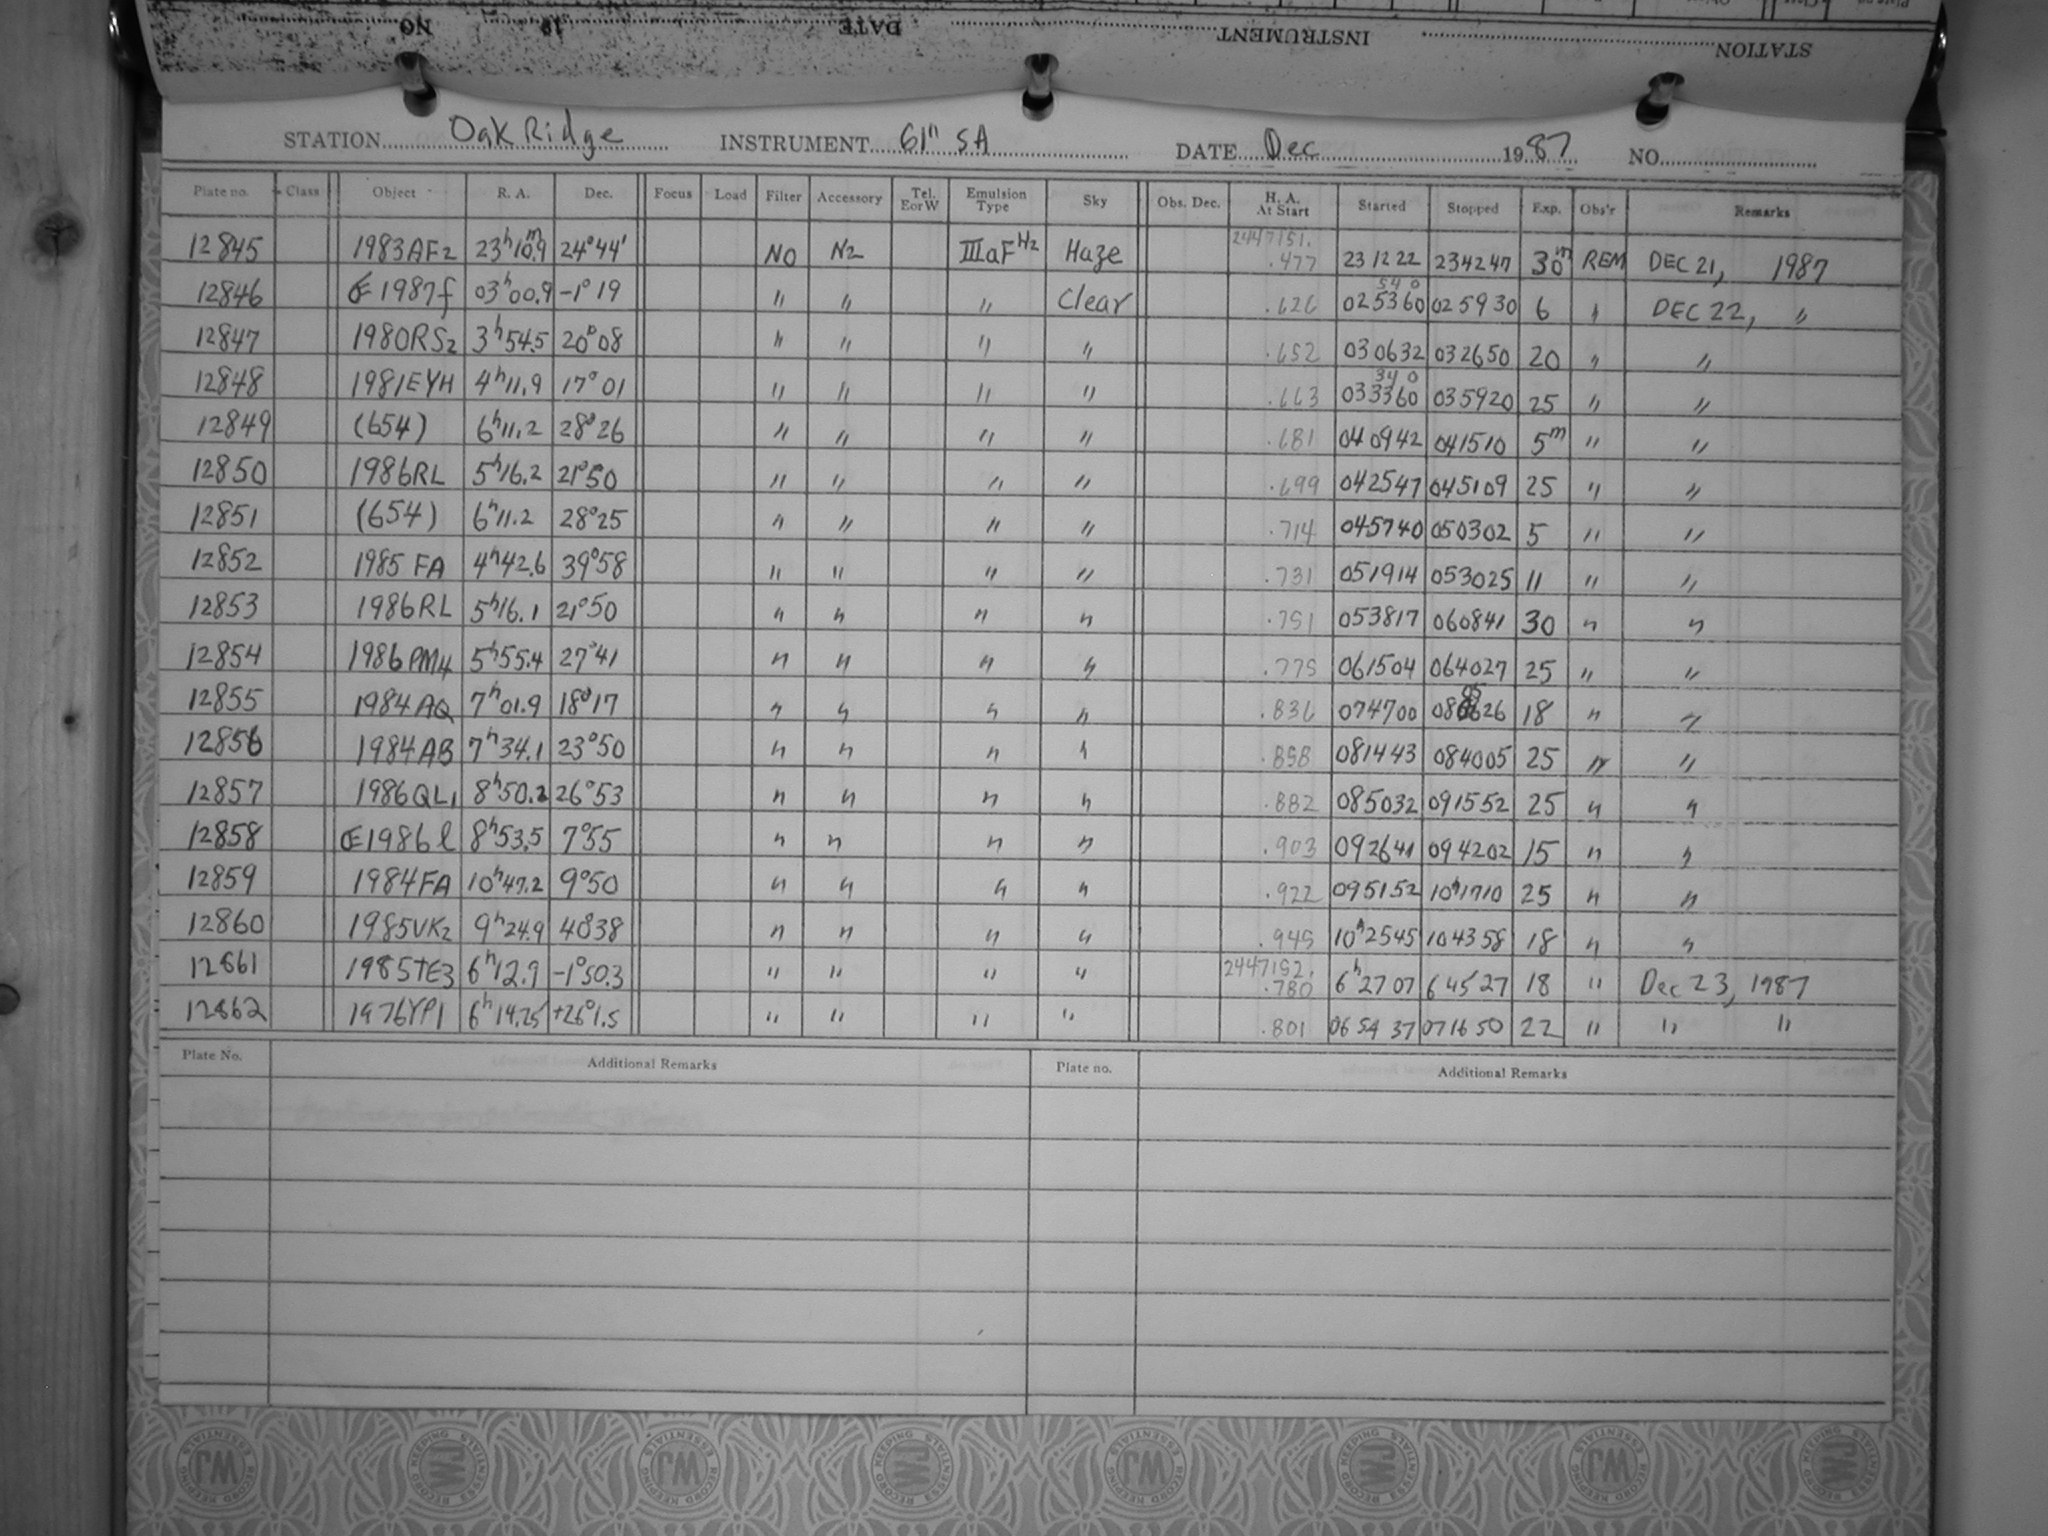 STATION INSTRUMENT DATE 19 NO
STATION Oak Ridge INSTRUMENT 61" SA DATE Dec 1987 NO
Plate no. Class Object R. A. Dec. Focus Load Filter Accessory Tel. E or W Emulsion Type Sky Obs. Dec. H. A. At Start Started Stopped Exp. Obs'r Remarks
12845 1983AF2 23h10m.9 24°44' NO N2 IIIaF H2 Haze 2447151. .477 231222 234247 30m REM DEC 21, 1987
12846 1987f 03h00.9 -1°19 " " " Clear .626 025360 540 025930 6 " DEC 22, "
12847 1980RS2 3h54.5 20°08 " " " " .652 030632 032650 20 " "
12848 1981EYH 4h11.9 17°01 " " " " .663 033360 340 035920 25 " "
12849 (654) 6h11.2 28°26 " " " " .681 040942 041510 5m " "
12850 1986RL 5h16.2 21°50 " " " " .699 042547 045109 25 " "
12851 (654) 6h11.2 28°25 " " " " .714 045740 050302 5 " "
12852 1985 FA 4h42.6 39°58 " " " " .731 051914 053025 11 " "
12853 1986RL 5h16.1 21°50 " " " " .751 053817 060841 30 " "
12854 1986PM4 5h55.4 27°41 " " " " .775 061504 064027 25 " "
12855 1984AQ 7h01.9 18°17 " " " " .836 074700 080526 18 " "
12856 1984AB 7h34.1 23°50 " " " " .858 081443 084005 25 " "
12857 1986QL1 8h50.2 26°53 " " " " .882 085032 091552 25 " "
12858 1986l 8h53.5 7°55 " " " " .903 092641 094202 15 " "
12859 1984FA 10h47.2 9°50 " " " " .922 095152 10h1710 25 " "
12860 1985VK2 9h24.9 4°38 " " " " .945 10h2545 104358 18 " "
12861 1985TE3 6h12.9 -1°50.3 " " " " 2447152. .780 6h2707 64527 18 " Dec 23, 1987
12862 1976YP1 6h14.25 +26°1.5 " " " " .801 065437 071650 22 " " "
Plate No. Additional Remarks Plate no. Additional Remarks
WJ RECORD KEEPING ESSENTIALS